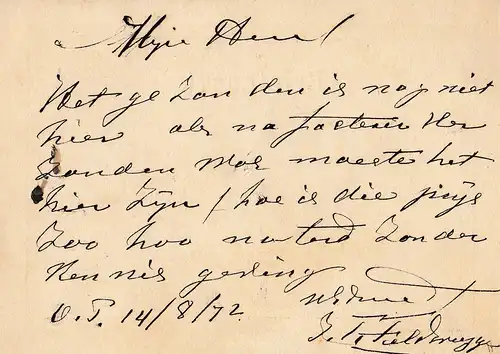 Mijn Heer
Het gezonden is nog niet
hier als na factuur Ver
zonden was moeste het
hier Zijn / hoe is die prijs
Zoo hoo Zonder
Kennis geving
O.P. 14/8/72